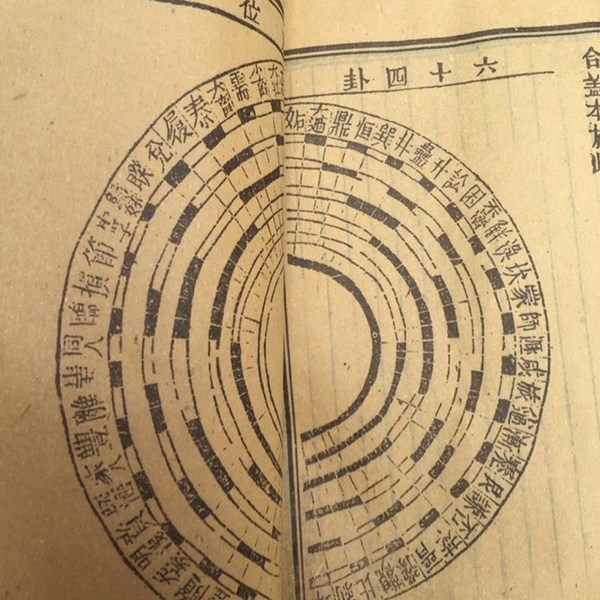 位
六十四卦
合蓋本於此
姤 大過 鼎 恒 巽 井 蠱 升 訟 困 未濟 解 渙 坎 蒙 師 遯 咸 旅 小過 漸 蹇 艮 謙 否 萃 晉 豫 觀 比 剝
大壯 小畜 需 大畜 泰 履 兌 睽 歸妹 中孚 節 損 臨 同人 革 離 豐 家人 既濟 賁 明夷 无妄 隨